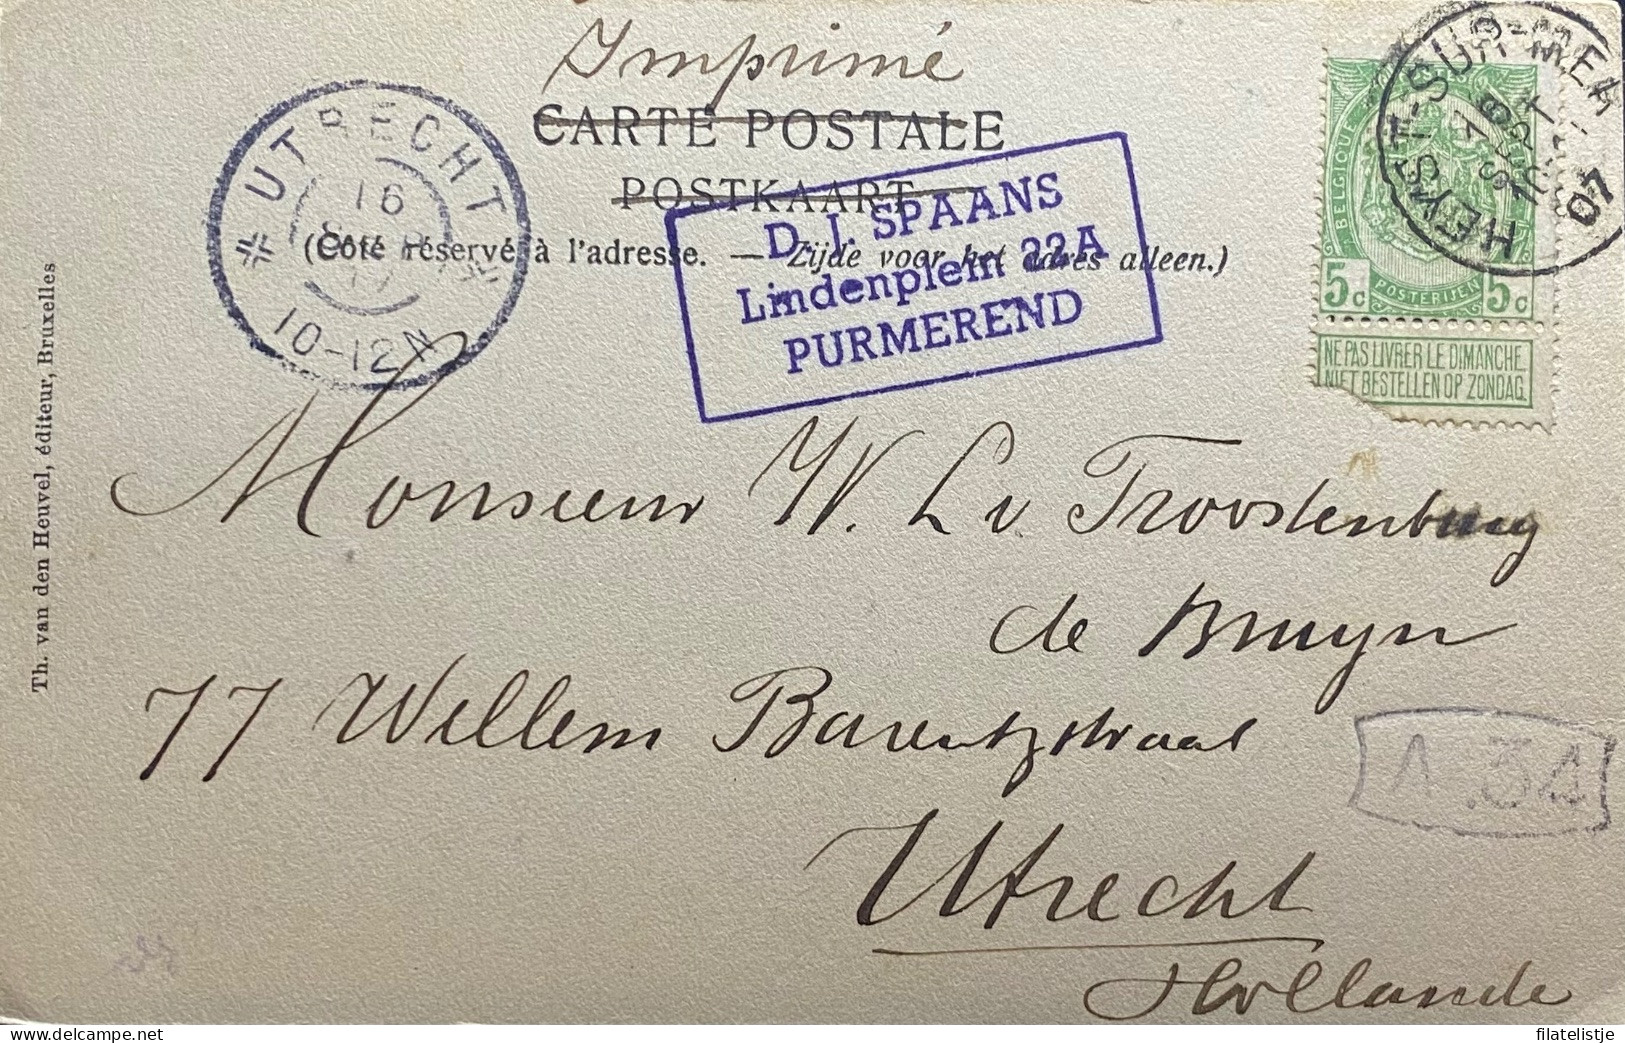 Imprimé
CARTE POSTALE
POSTKAART
(Côté réservé à l'adresse. — Zijde voor het adres alleen.)
UTRECHT
16
10-12N
D. J. SPAANS
Lindenplein 22A
PURMEREND
HEYST-SUR-MER
07
BELGIQUE
5c POSTERIJEN 5c
NE PAS LIVRER LE DIMANCHE
NIET BESTELLEN OP ZONDAG
Th. van den Heuvel, éditeur, Bruxelles
Monsieur W. L v Troostenburg
de Bruyn
77 Willem Barentzstraat
Utrecht
Hollande
A 34
filatelistje